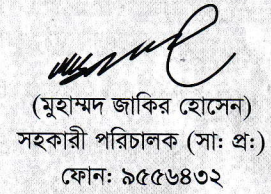 (মুহাম্মদ জাকির হোসেন)
সহকারী পরিচালক (সা: প্র:)
ফোন: ৯৫৫৬৪৩২